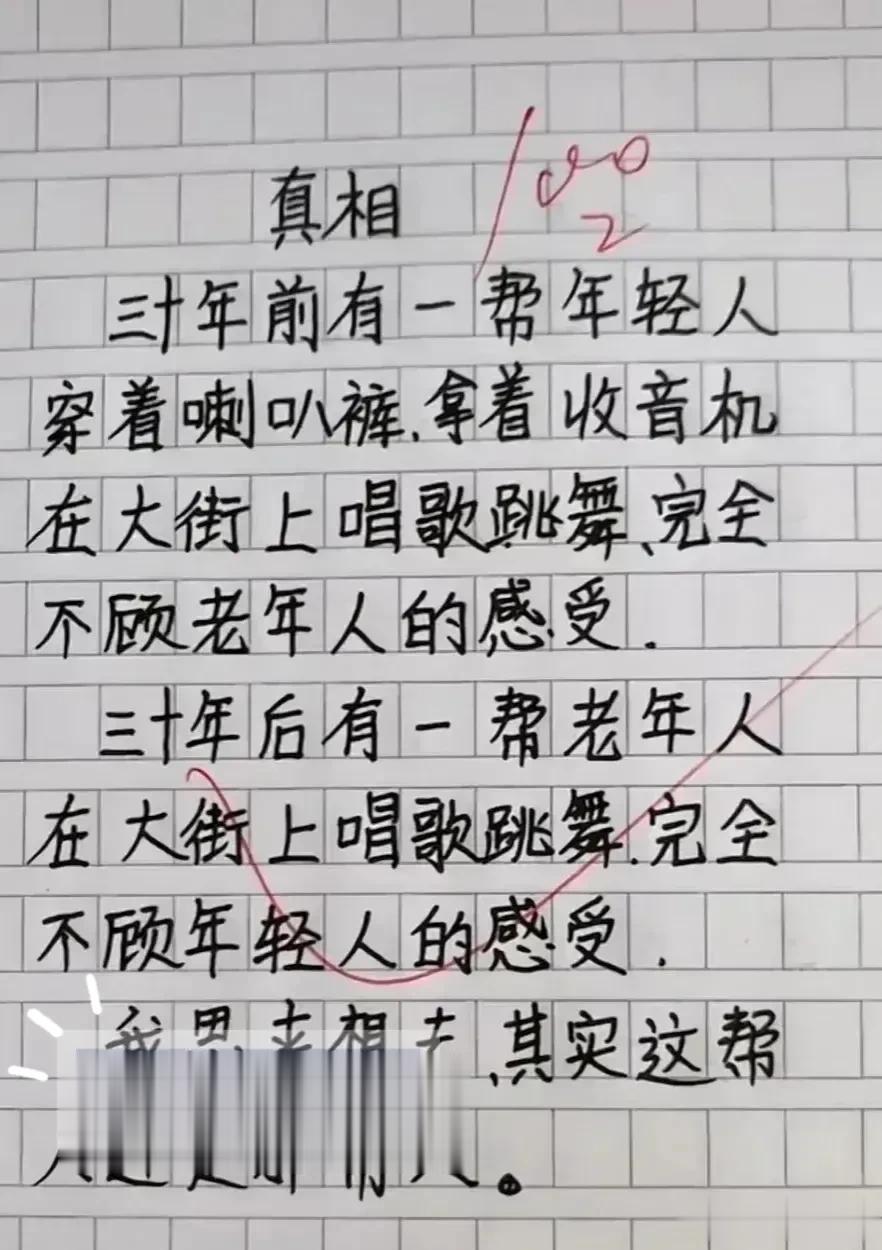 真相
100
2
三十年前有一帮年轻人
穿着喇叭裤、拿着收音机
在大街上唱歌跳舞、完全
不顾老年人的感受.
三十年后有一帮老年人
在大街上唱歌跳舞.完全
不顾年轻人的感受.
我思来想去、其实这帮
。